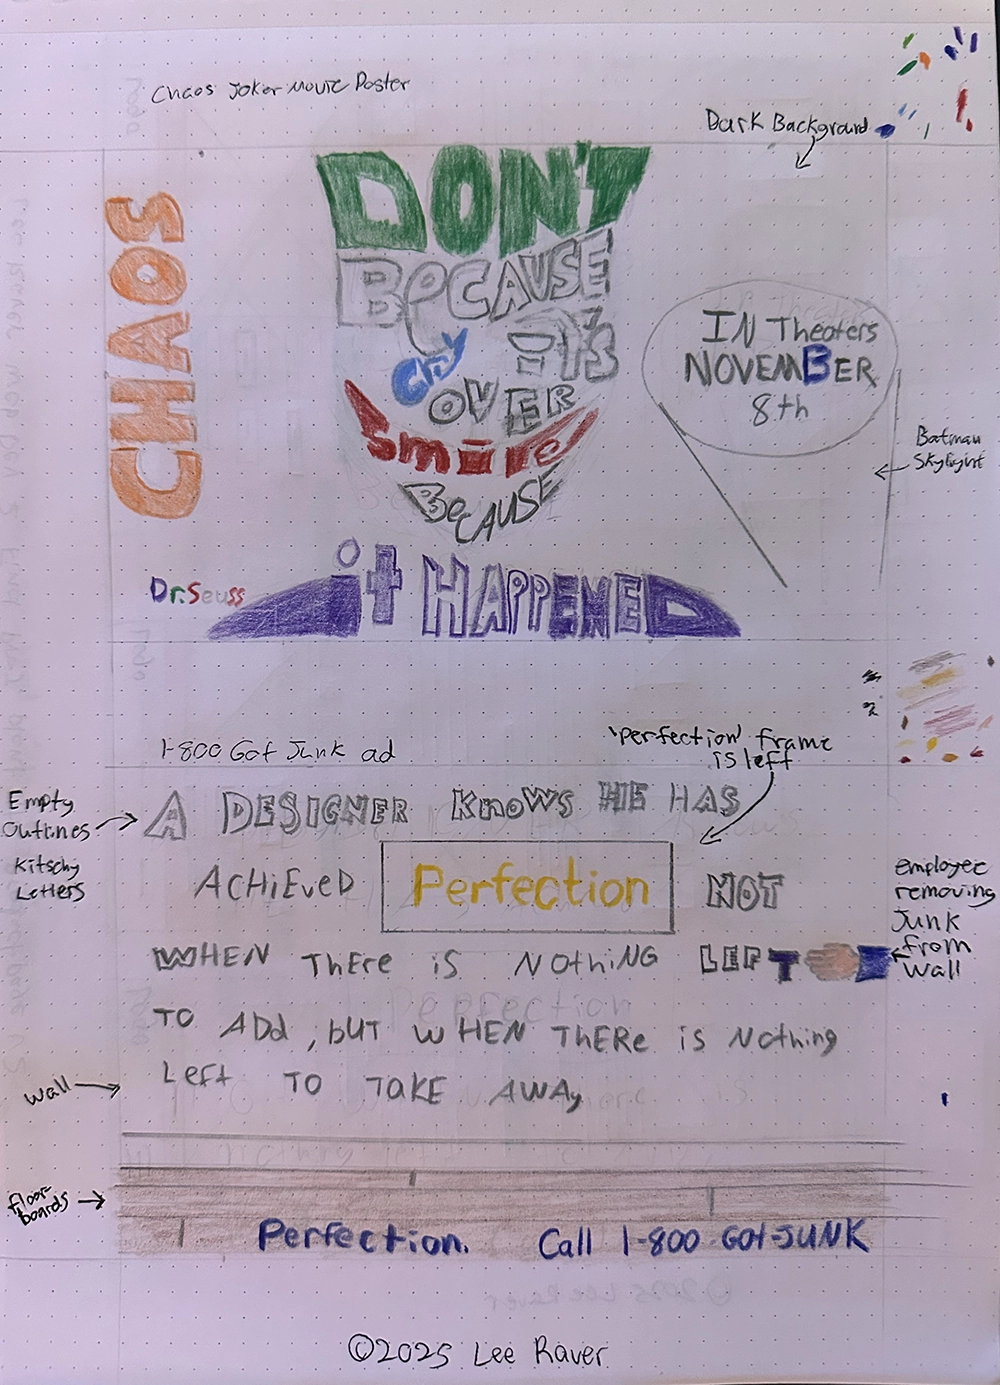 Chaos Joker Movie Poster
Dark Background
CHAOS
DON'T
BeCAUSE
Cry iT's
OVER
Smile
BeCAUSE
it HAPPENED
Dr. Seuss
IN Theaters
NOVEMBER
8th
Batman
Skylight
1-800 Got Junk ad
'perfection' frame
is left
Empty
Outlines
Kitschy
Letters
A DESIGNER KnoWS HE HAS
ACHiEveD Perfection NOT
WHEN ThEre iS NOthiNG LEFT
TO ADd, bUT WHEN ThERe iS NOthing
Left TO TAKE AWAy
employee
removing
Junk
from
wall
wall
floor-
boards
Perfection. Call 1-800 GOt-JUNK
©2025 Lee Raver